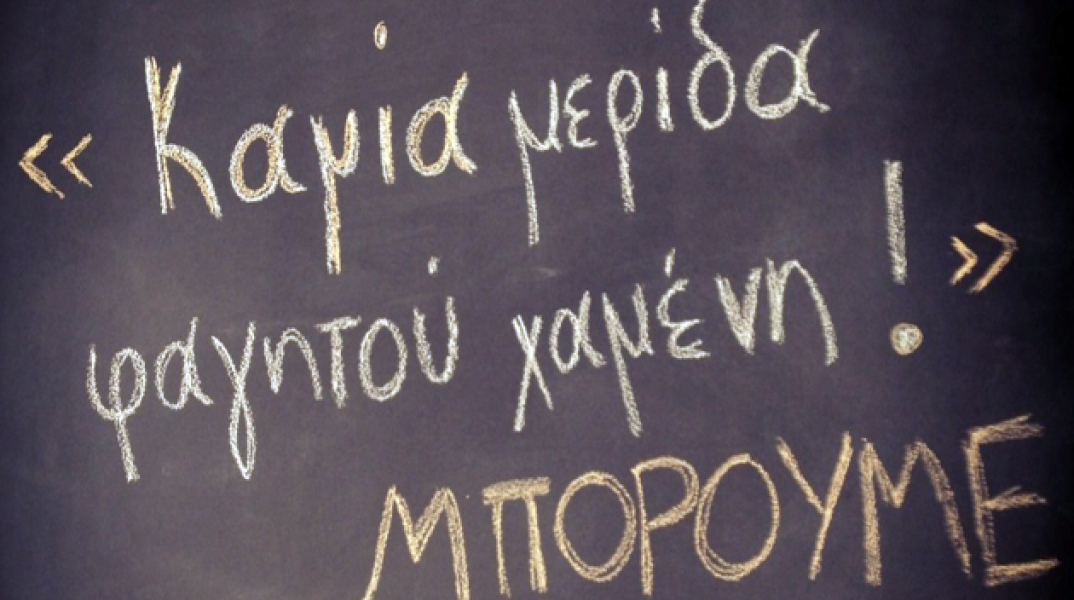 «Καμία μερίδα
φαγητού χαμένη!»
ΜΠΟΡΟΥΜΕ